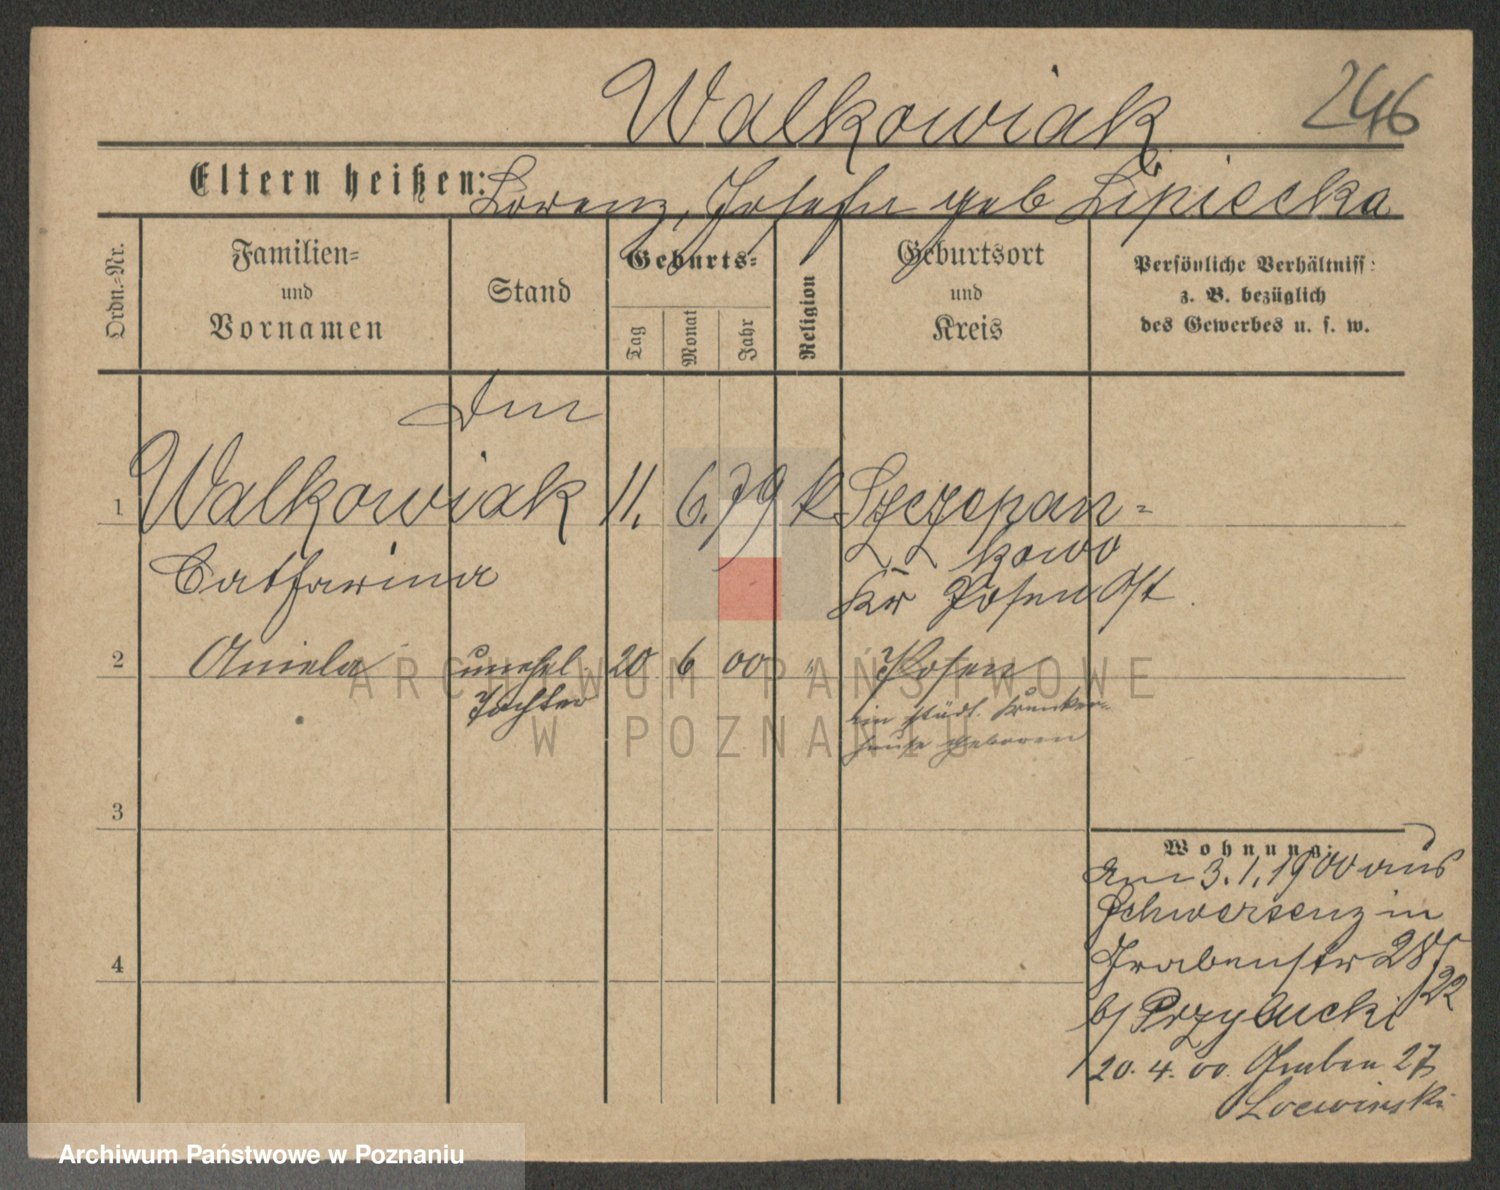 Walkowiak
246
Eltern heißen: Lorenz, Josefa geb Lipiecka
Ordn.-Nr.
Familien-
und
Vornamen
Stand
Geburts-
Tag
Monat
Jahr
Religion
Geburtsort
und
Kreis
Persönliche Verhältniss:
z. B. bezüglich
des Gewerbes u. s. w.
1 Walkowiak 11. 6. 79 k Szczepan-
kowo
Catharina
Kr Posen Ost.
2 Aniela unehel. 20 6 00 " Posen
Tochter
im städt. Kranken-
hause geboren
3
4
Wohnung:
Am 3.1.1900 aus
Schwersenz in
Grabenstr 28
22
b/ Przylucki
20. 4. 00. Graben 27
Loewinski
ARCHIWUM PAŃSTWOWE
W POZNANIU
Archiwum Państwowe w Poznaniu